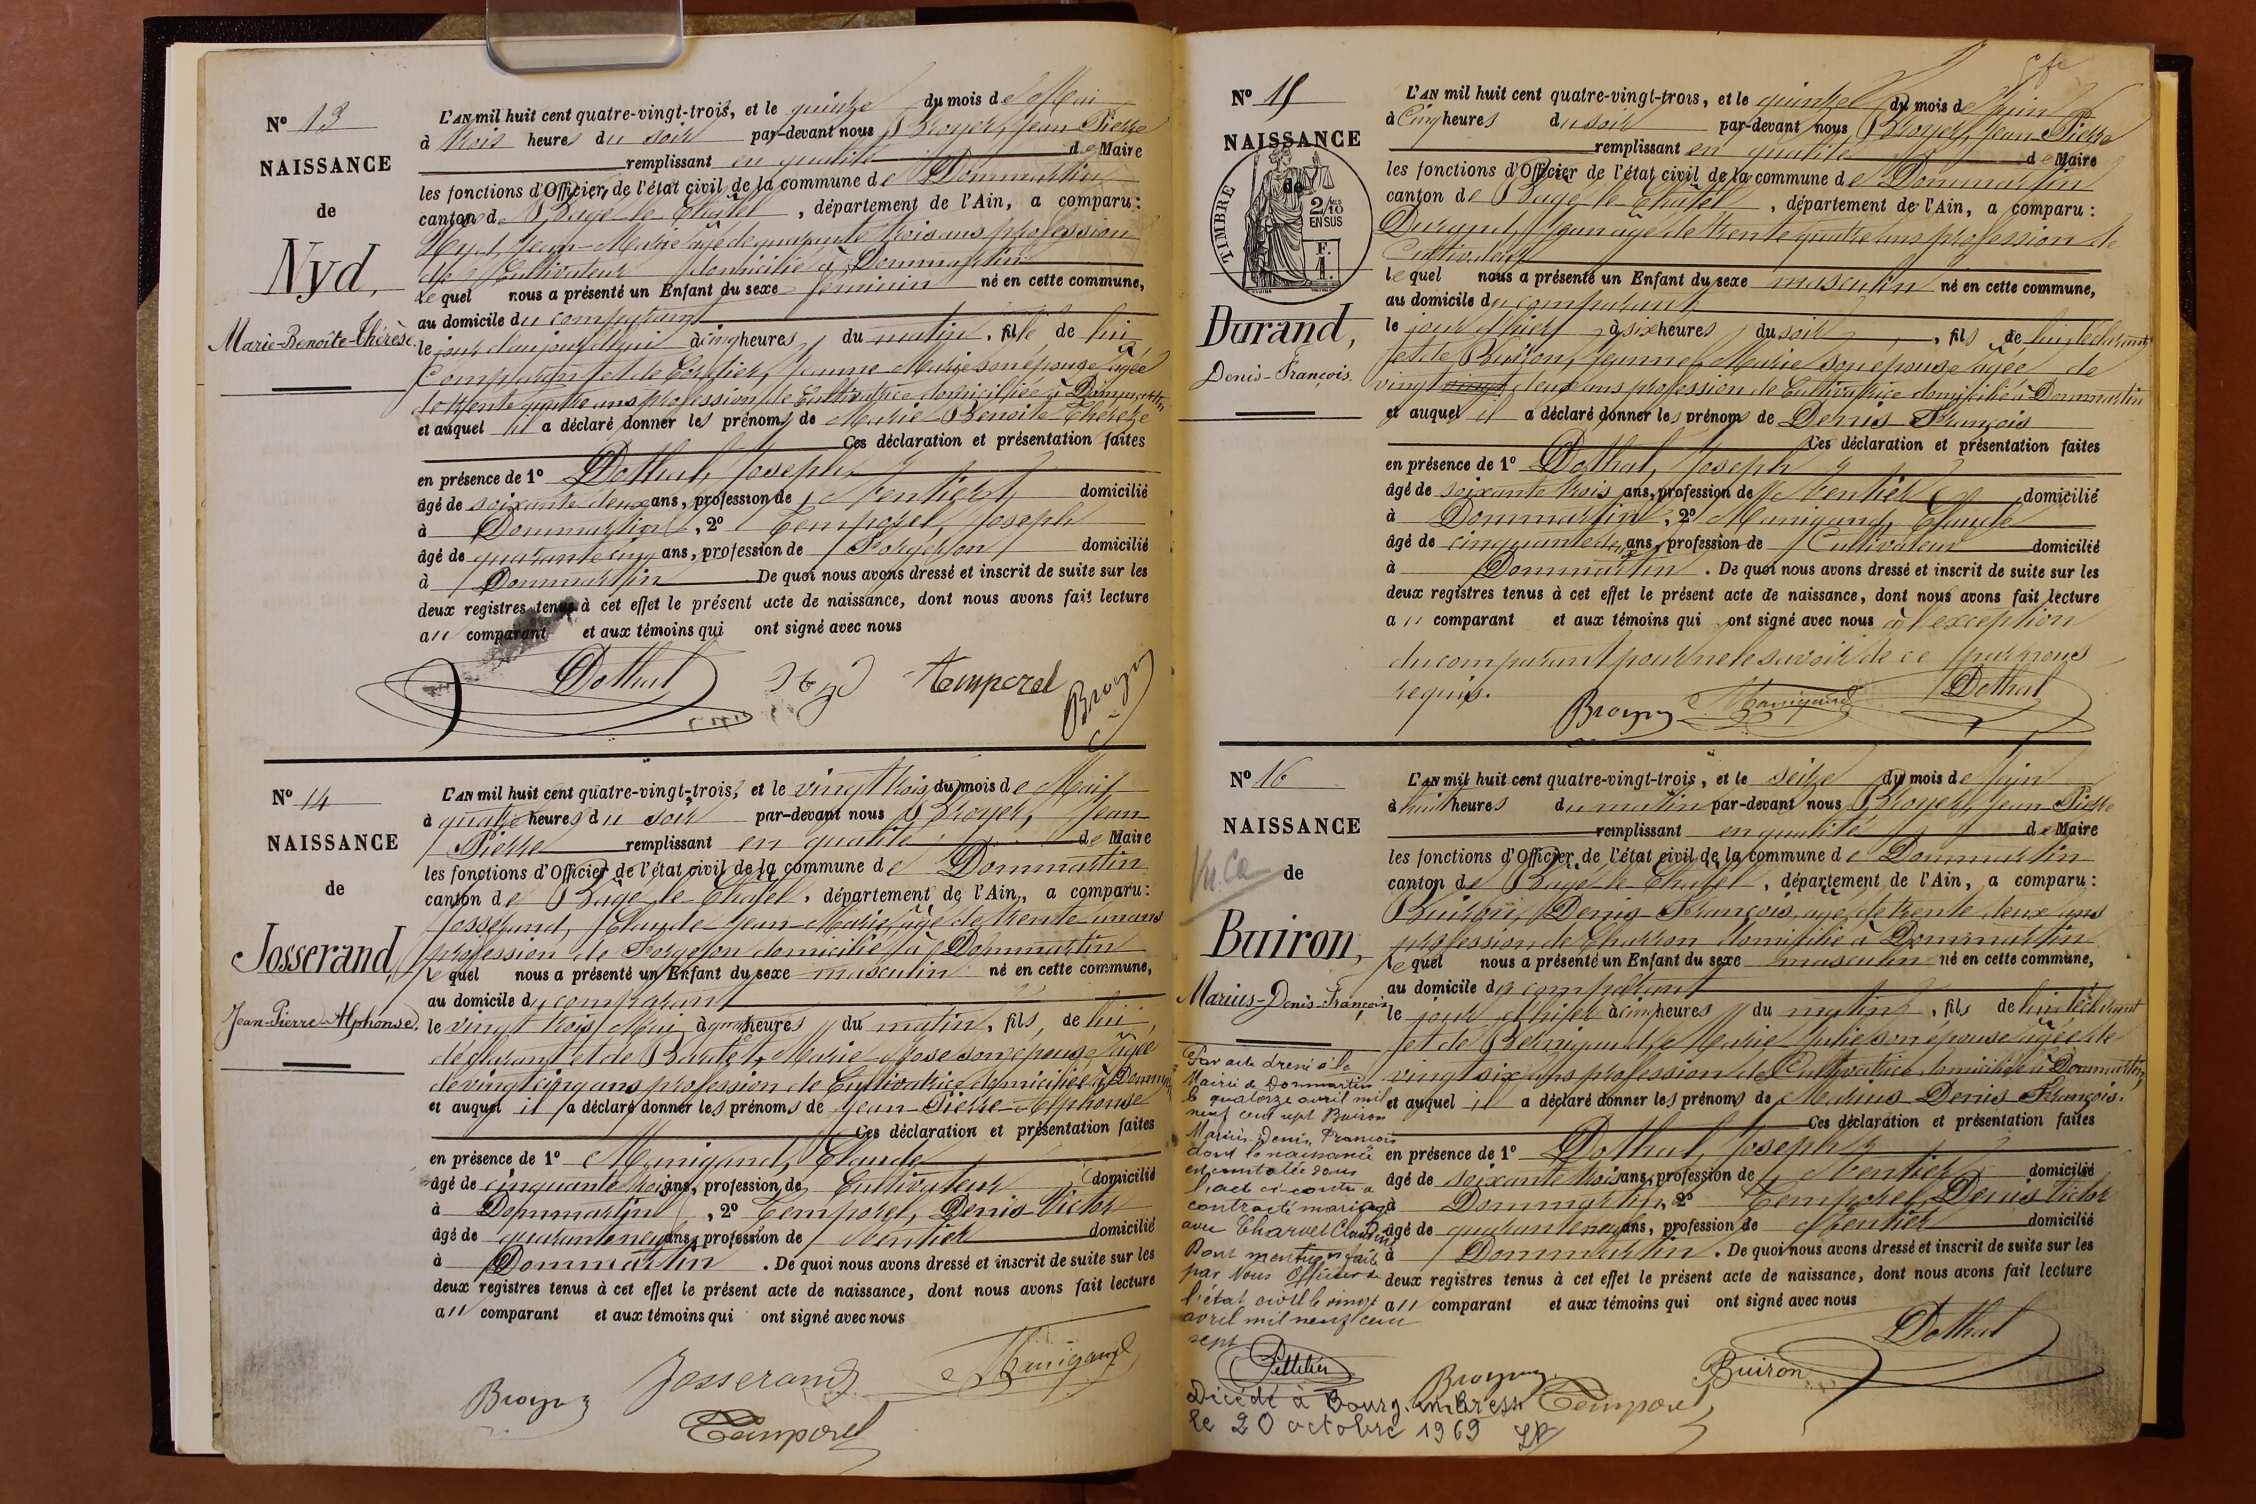 Nº 13
NAISSANCE
de
Nyd,
Marie-Benoîte-Thérèse.
L'AN mil huit cent quatre-vingt-trois, et le quinze du mois de Mai
à trois heures du soir par-devant nous Broyer, Jean Pierre
remplissant en qualité de Maire
les fonctions d'Officier de l'état civil de la commune de Dommartin
canton de Bâgé-le-Châtel, département de l'Ain, a comparu:
Nyd, Jean-Marie âgé de quarante trois ans profession
de Cultivateur domicilié à Dommartin
lequel nous a présenté un Enfant du sexe féminin né en cette commune,
au domicile du comparant
le jour d'aujourd'hui à cinq heures du matin, fille de lui
comparant et de Jeanne Marie son épouse âgée
de trente quatre ans profession de Cultivatrice domiciliée à Dommartin
et auquel il a déclaré donner les prénoms de Marie Benoite Thérèze
Ces déclaration et présentation faites
en présence de 1º Dothal, Joseph
âgé de soixante deux ans, profession de Rentier domicilié
à Dommartin, 2º Temporel, Joseph
âgé de quarante cinq ans, profession de Forgeron domicilié
à Dommartin De quoi nous avons dressé et inscrit de suite sur les
deux registres tenus à cet effet le présent acte de naissance, dont nous avons fait lecture
au comparant et aux témoins qui ont signé avec nous
Dothal Nyd Temporel Broyer
Nº 14
NAISSANCE
de
Josserand,
Jean-Pierre-Alphonse.
L'AN mil huit cent quatre-vingt-trois, et le vingt trois du mois de Mai
à quatre heures du soir par-devant nous Broyer, Jean
Pierre remplissant en qualité de Maire
les fonctions d'Officier de l'état civil de la commune de Dommartin
canton de Bâgé-le-Châtel, département de l'Ain, a comparu:
Josserand, Claude-Jean-Marie, âgé de trente un ans
profession de Forgeron domicilié à Dommartin
lequel nous a présenté un Enfant du sexe masculin né en cette commune,
au domicile du comparant
le vingt trois Mai à quatre heures du matin, fils de lui
déclarant et de Marie Rose son épouse âgée
de vingt cinq ans profession de Cultivatrice domiciliée à Dommartin
et auquel il a déclaré donner les prénoms de Jean-Pierre-Alphonse
Ces déclaration et présentation faites
en présence de 1º Manigand, Claude
âgé de cinquante trois ans, profession de Cultivateur domicilié
à Dommartin, 2º Temporel, Denis-Victor
âgé de quarante neuf ans, profession de Rentier domicilié
à Dommartin. De quoi nous avons dressé et inscrit de suite sur les
deux registres tenus à cet effet le présent acte de naissance, dont nous avons fait lecture
au comparant et aux témoins qui ont signé avec nous
Broyer Josserand Manigand
Temporel
Nº 15
NAISSANCE
de
TIMBRE
2/10
EN SUS
F.
1.
Durand,
Denis-François.
L'AN mil huit cent quatre-vingt-trois, et le quinze du mois de Juin
à cinq heures du soir par-devant nous Broyer, Jean Pierre
remplissant en qualité de Maire
les fonctions d'Officier de l'état civil de la commune de Dommartin
canton de Bâgé-le-Châtel, département de l'Ain, a comparu:
Durand, Jean âgé de trente quatre ans profession de
Cultivateur
lequel nous a présenté un Enfant du sexe masculin né en cette commune,
au domicile du comparant
le jour d'hier à six heures du soir, fils de lui déclarant
et de Buiron, Jeanne Marie son épouse âgée de
vingt deux ans profession de Cultivatrice domicilié à Dommartin
et auquel il a déclaré donner les prénoms de Denis François
Ces déclaration et présentation faites
en présence de 1º Dothal, Joseph
âgé de soixante trois ans, profession de Rentier domicilié
à Dommartin, 2º Manigand, Claude
âgé de cinquante ans, profession de Cultivateur domicilié
à Dommartin. De quoi nous avons dressé et inscrit de suite sur les
deux registres tenus à cet effet le présent acte de naissance, dont nous avons fait lecture
au comparant et aux témoins qui ont signé avec nous à l'exception
du comparant pour ne le savoir de ce par nous
requis.
Broyer Manigand Dothal
Nº 16
NAISSANCE
de
Buiron,
Marius-Denis-François.
L'AN mil huit cent quatre-vingt-trois, et le seize du mois de Juin
à huit heures du matin par-devant nous Broyer, Jean Pierre
remplissant en qualité de Maire
les fonctions d'Officier de l'état civil de la commune de Dommartin
canton de Bâgé-le-Châtel, département de l'Ain, a comparu:
Buiron, Denis-François, âgé de trente deux ans
profession de Charron domicilié à Dommartin
lequel nous a présenté un Enfant du sexe masculin né en cette commune,
au domicile du comparant
le jour d'hier à cinq heures du matin, fils de lui déclarant
et de Marie Julie son épouse âgée de
vingt six ans profession de Cultivatrice domiciliée à Dommartin,
et auquel il a déclaré donner les prénoms de Marius Denis François.
Ces déclaration et présentation faites
en présence de 1º Dothal, Joseph
âgé de soixante trois ans, profession de Rentier domicilié
à Dommartin, 2º Temporel, Denis Victor
âgé de quarante neuf ans, profession de Rentier domicilié
à Dommartin. De quoi nous avons dressé et inscrit de suite sur les
deux registres tenus à cet effet le présent acte de naissance, dont nous avons fait lecture
au comparant et aux témoins qui ont signé avec nous
Dothal
Broyer Temporel Buiron
Par acte dressé à la
Mairie de Dommartin
le quatorze avril mil
neuf cent sept Buiron
Marius Denis François
dont la naissance
est constatée dans
l'acte ci-contre a
contracté mariage
avec Charvet Claudine
Dont mention faite
par Nous Officier de
l'état civil le vingt
avril mil neuf cent
sept
Pelletier
Décédé à Bourg-en-Bresse
le 20 octobre 1969